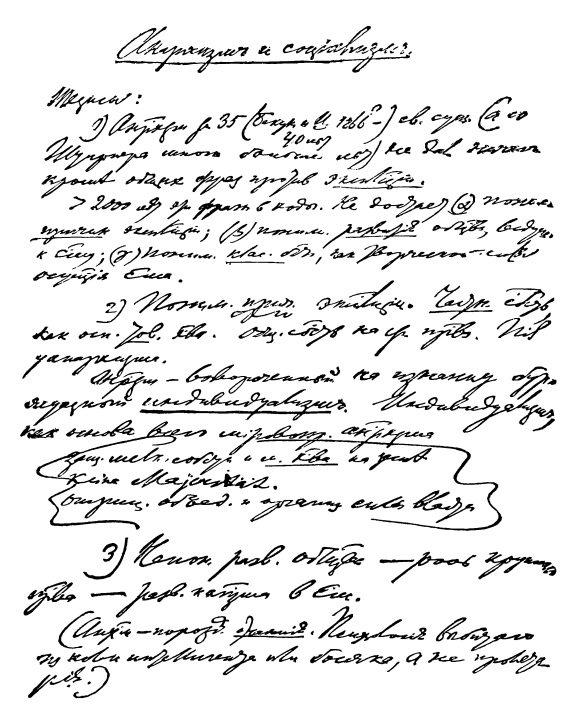 Анархизм и социализм.
Тезисы:
1) Анархизм за 35 (Бакунин и И. 1866?–) св. сущ. (а со
40 лет
Штирнера много больше лет) не дал ничего
кроме общих фраз против эксплуатации.
> 2000 лет эти фразы в ходу. Недостает (α) поним.
причин эксплуатации; (β) поним. развития общества, ведущего
к Социализму; (γ) поним. клас. борьбы, как творческой силы
осуществления Социализма.
2) Поним. прич. эксплуатации. Частн. собств.
как осн. тов. хва. Общ. собств. на ср. прва. Nil
у анархизма.
Анархизм – вывороченный на изнанку бурж
уазный индивидуализм. Индивидуализм,
как основа всего мировоззр. анархизма
защ. мелк. собств. и м. хва на земле
Keine Majorität.
отриц. объед. и организ. силы власти
3) Непон. разв. общества — роль крупного
прва — разв. капитализма в Социализм.
(Анархизм – порожд. отчаяния. Психология выбитого
из колеи интеллигента или босяка, а не пролета
рия.)